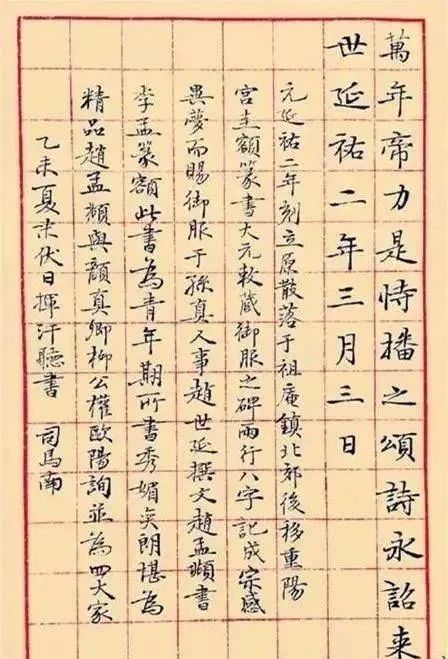 萬年帝力是恃播之頌詩永詔来
世延祐二年三月三日
元延祐二年刻立原散落于祖庵鎮北郊後移重陽
宮圭額篆書大元敕藏御服之碑兩行八字記成宗感
異夢而賜御服于孫真人事趙世延撰文趙孟頫書
李孟篆額此書為青年期所書秀媚爽朗堪為
精品趙孟頫與顏真卿柳公權歐陽詢並為四大家
乙未夏末伏日揮汗聽書 司馬南